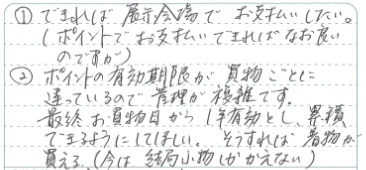 ① できれば 展示会場で お支払いしたい。
(ポイントでお支払いできればなお良い
のですが)
② ポイントの有効期限が 買物ごとに
違っているので 管理が複雑です。
最終お買物日から1年有効とし、累積
できるようにしてほしい。 そうすれば 着物が
買える(今は 結局小物しかかえない)